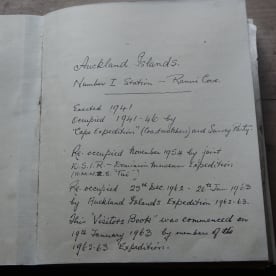 Auckland Islands.
Number I Station – Ranui Cove.
Erected 1941
Occupied 1941-46 by
"Cape Expedition" (Coastwatchers) and Survey Party.
Re-occupied November 1954 by joint
D.S.I.R. – Dominion Museum Expedition
(H.M.N.Z.S. "Tui")
Re-occupied 23rd Dec. 1962 – 20th Jan 1963
by Auckland Islands Expedition 1962-63.
This "Visitors Book" was commenced on
19th January 1963 by members of the
1962-63 Expedition.